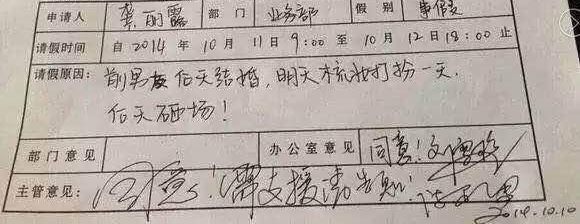 申请人 龚丽露 部门 业务部 假别 事假
请假时间 自 2014 年 10 月 11 日 9:00 至 10 月 12 日 18:00 止
请假原因： 前男友后天结婚，明天梳妆打扮一天，
后天砸场！
部门意见 办公室意见 同意！
主管意见： 同意！需支援请告知！
2014.10.10